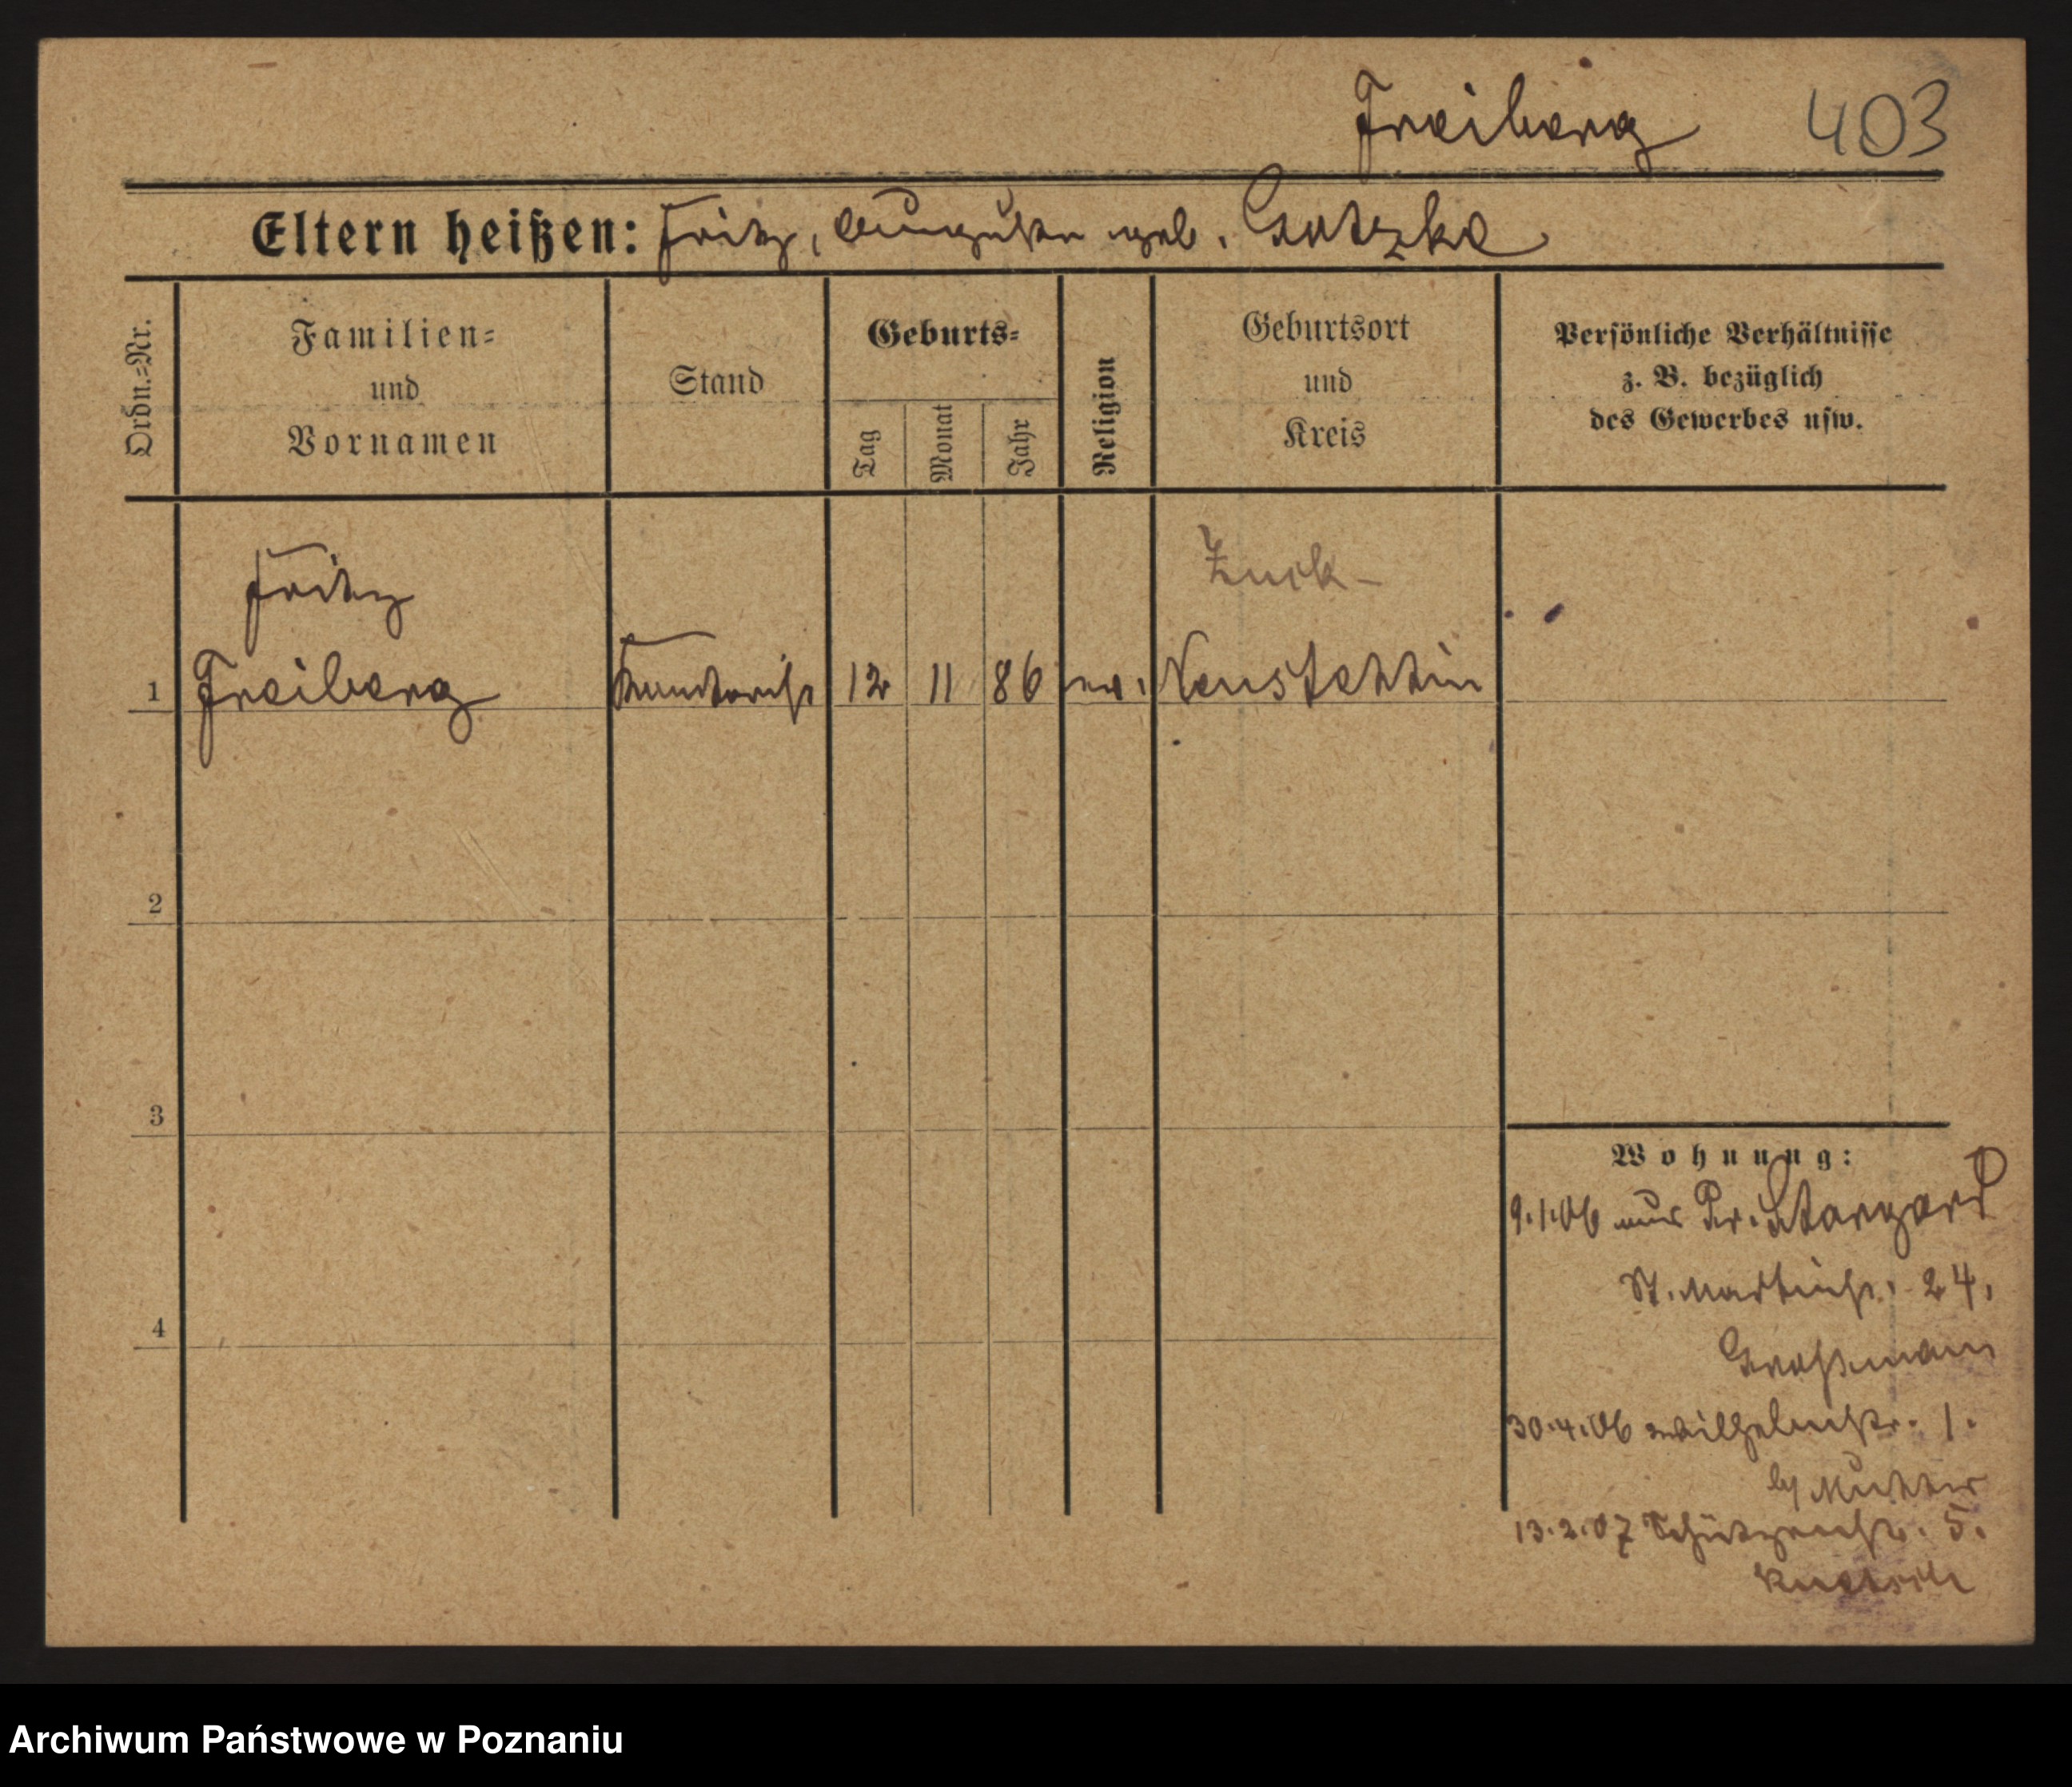 Freiberg 403
Eltern heißen: Fritz, Auguste geb. Gatzke
Ordn.=Nr.
Familien=
und
Vornamen
Stand
Geburts=
Tag
Monat
Jahr
Religion
Geburtsort
und
Kreis
Persönliche Verhältnisse
z. B. bezüglich
des Gewerbes usw.
Fritz
1 Freiberg Kontorist 12 11 86 ev. Neustettin
2
3
4
Wohnung:
9.1.06 aus Pr. Stargard
St. Martinstr. 24.
Großmann
30.4.06 Wilhelmstr. 1.
b/ Mutter
13.2.07 Schützenstr. 5.
Archiwum Państwowe w Poznaniu